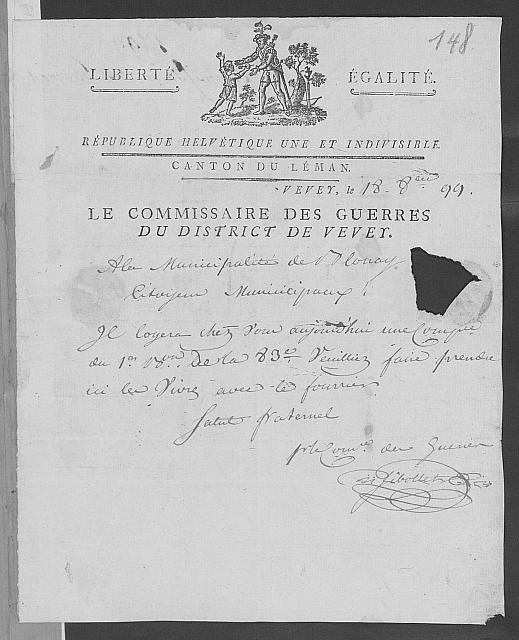 148
LIBERTÉ ÉGALITÉ.
RÉPUBLIQUE HELVÉTIQUE UNE ET INDIVISIBLE.
CANTON DU LÉMAN.
VEVEY, le 18. 8bre 99.
LE COMMISSAIRE DES GUERRES
DU DISTRICT DE VEVEY.
A la Municipalité de Blonay
Citoyens Municipaux!
Il logera chez Vous aujourd'hui une Compie
du 1er Bon. De la 83e Veuilliez faire prendre
ici les Vivres avec le fourrier
Salut fraternel
des Guerres